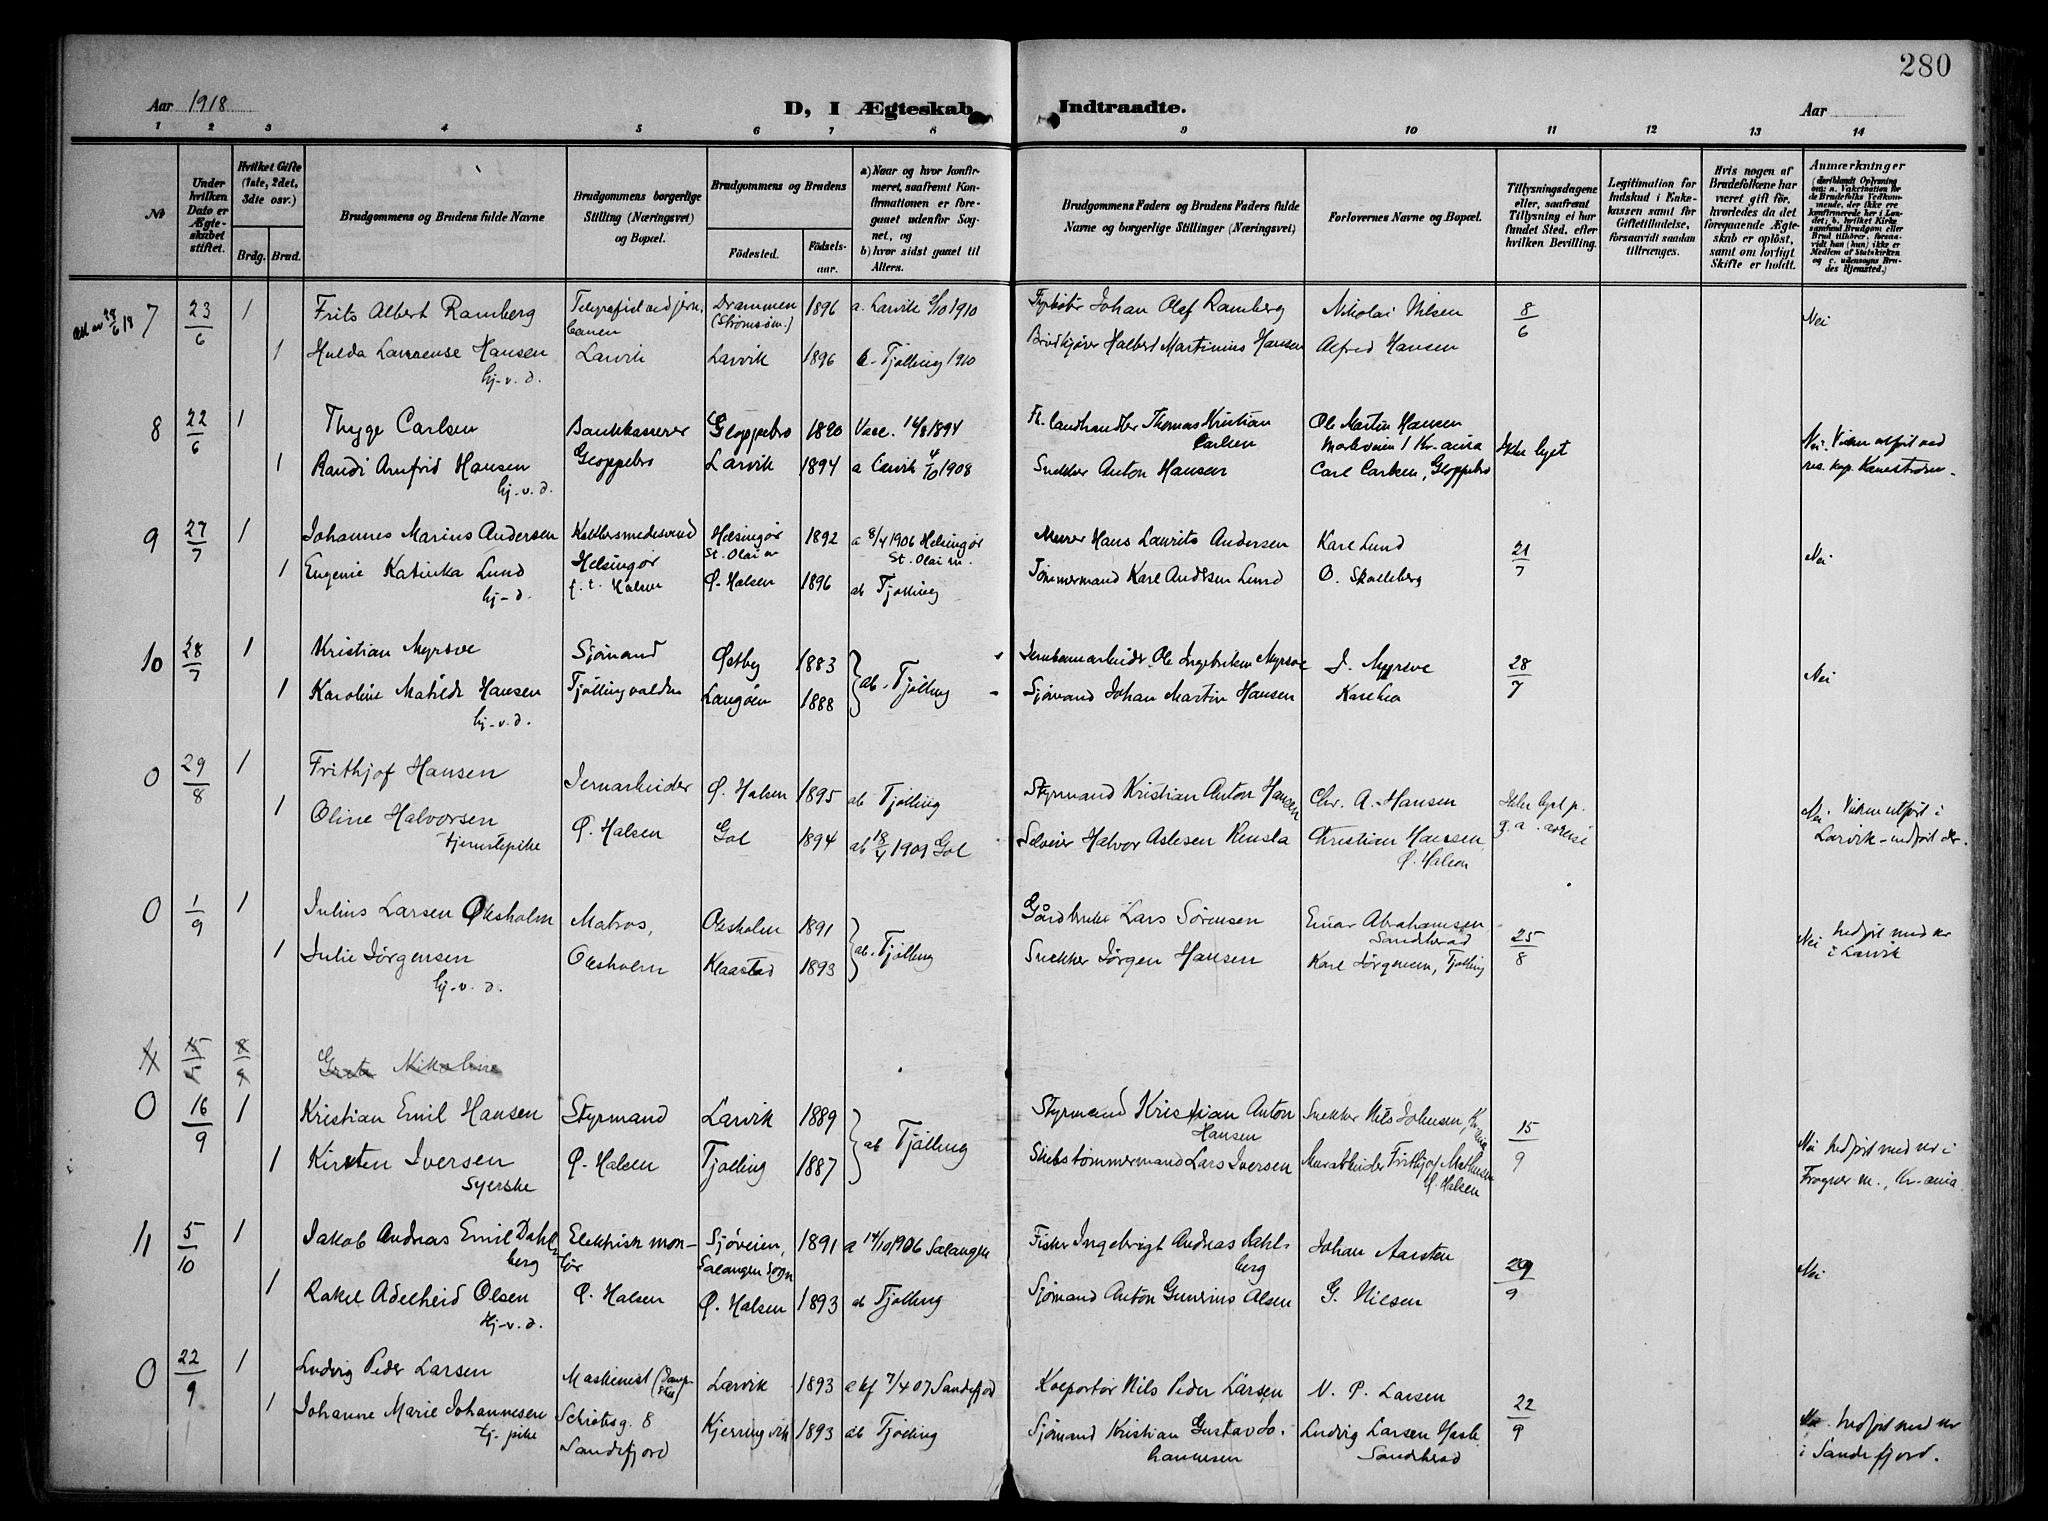 280
Aar 1918
D, I Ægteskab
Indtraadte.
Aar
1 2 3 4 5 6 7 8 9 10 11 12 13 14
No
Under hvilken Dato er Ægteskabet stiftet.
Hvilket Gifte (1ste, 2det, 3die osv.)
Brdg. Brud.
Brudgommens og Brudens fulde Navne
Brudgommens borgerlige Stilling (Næringsvei) og Bopæl.
Brudgommens og Brudens
Fødested.
Fødselsaar.
a) Naar og hvor konfirmeret, saafremt Konfirmationen er foregaaet udenfor Sognet, og
b) hvor sidst gaaet til Alters.
Brudgommens Faders og Brudens Faders fulde Navne og borgerlige Stillinger (Næringsvei)
Forlovernes Navne og Bopæl.
Tillysningsdagene eller, saafremt Tillysning ei har fundet Sted, efter hvilken Bevilling.
Legitimation for Indskud i Enkekassen samt for Giftetilladelse, forsaavidt saadan tiltrænges.
Hvis nogen af Brudefolkene har været gift før, hvorledes da det foregaaende Ægteskab er opløst, samt om lovligt Skifte er holdt.
Anmærkninger
(deriblandt Oplysning om: a. Vakcination for de Brudefolks Vedkommende, der ikke ere konfirmerede her i Landet; b. hvilket Kirkesamfund Brudgom eller Brud tilhører, forsaavidt han (hun) ikke er Medlem af Statskirken og c. udensogns Brudes Hjemsted.)
7 23/6 1 Frits Albert Ramberg Telegrafist ved jernbanen Drammen (Strømsøm.) 1896 a. Larvik 2/10 1910 Johan Olaf Ramberg Nikolai Nilsen 8/6 Nei
1 Hulda Laurense Hansen hj-v.d. Larvik Larvik 1896 Tjølling 1910 Brødkjører Halbert Martinius Hansen Alfred Hansen
8 22/6 1 Thyge Carlsen Bankkasserer Gloppebro 1890 Vase. 1894 Fh. landhandler Thomas Kristian Carlsen Ole Martin Hansen Kr-ania Ikke lyst Nei. Vielsen utført ved res. kap.
1 Randi Arnfrid Hansen hj-v.d. Gloppebro Larvik 1894 a Larvik 4/10 1908 Snekker Anton Hansen Carl Carlsen, Gloppebro
9 27/7 1 Johannes Marius Andersen Kobbersmedesvend Helsingør St. Olai m 1892 a 8/4 1906 Helsingør St. Olai m. Murer Hans Laurits Andersen Karl Lund 21/7 Nei
1 Eugenie Katinka Lund hj-d. Helsingør f. t. Halsen Ø. Halsen 1896 ab Tjølling Tømmermand Karl Andersen Lund O. Skalleberg
10 28/7 1 Kristian Myrsve Sjømand Østby 1883 ab. Tjølling Jernbanearbeider Ole Ingebriktsen Myrsve J. Myrsve 28/7 Nei
1 Karoline Matilde Hansen hj-v.d. Tjøllingvolden Langøen 1888 Sjømand Johan Martin Hansen
0 29/8 1 Frithjof Hansen Jernarbeider Ø. Halsen 1895 ab Tjølling Styrmand Kristian Anton Hansen Chr. A. Hansen Ikke lyst p. g. a. Nei. Vielsen utført i Larvik - indført der.
1 Oline Halvorsen tjenestepike Ø. Halsen Gol 1894 ab 18/4 1909 Gol Selveier Halvor Aslesen Rensla Christian Hansen, Ø. Halsen
0 1/9 1 Julius Larsen Oksholm Matros, Oksholm 1891 ab. Tjølling Gårdbruker Lars Sørensen Einar Abrahamsen Sandherad 25/8 Nei Indført med nr i Larvik
1 Julie Jørgensen hj-v.d. Oksholm Klaastad 1893 Snekker Jørgen Hansen Karl Jørgensen, Tjølling
Grete Nikoline
0 16/9 1 Kristian Emil Hansen Styrmand Larvik 1889 ab Tjølling Styrmand Kristian Anton Hansen Snekker Nils Johnsen, Kr.ania 15/9 Nei Indført med nr i Frogner m., Kr-ania
1 Kirsten Iversen Syerske Ø. Halsen Tjølling 1887 Skibstømmermand Lars Iversen Murarbeider Frithjof Mathisen Ø. Halsen
11 5/10 1 Jakob Andreas Emil Dahlberg Elektrisk montør Sjøveien, Salangen sogn 1891 a 14/10 1906 Salangen Fisker Ingebrigt Andreas Dahlberg Johan Aarsten 29/9 Nei
1 Rakel Adelheid Olsen Hj-v.d. Ø. Halsen Ø. Halsen 1893 ab Tjølling Sjømand Anton Gunerius Olsen G. Nilsen
0 22/9 1 Ludvig Peder Larsen Maskinist Larvik 1893 a kf 7/4 07 Sandefjord Kolportør Nils Peder Larsen N. P. Larsen 22/9 Nei. Indført med nr i Sandefjord.
1 Johanne Marie Johannesen tj-pike 8 Sandefjord Kjerringvik 1893 ab Tjølling Sjømand Kristian Gustav Johannesen Ludvig Larsen Sandherad